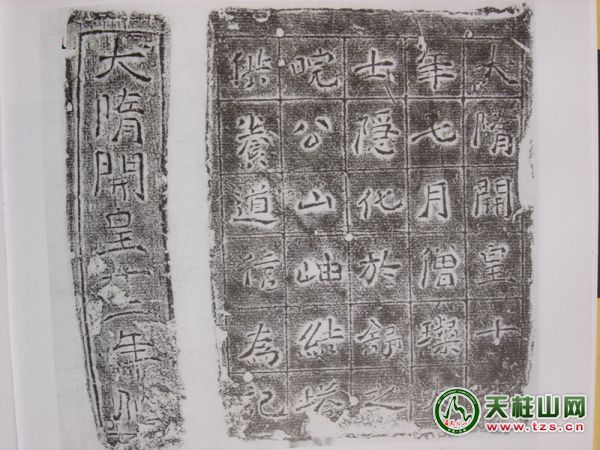 大隋開皇十
年七月僧璨
士隱化於舒之
皖公山岫結塔
供養道信為記
大隋開皇十二年作
天柱山网
www.tzs.cn